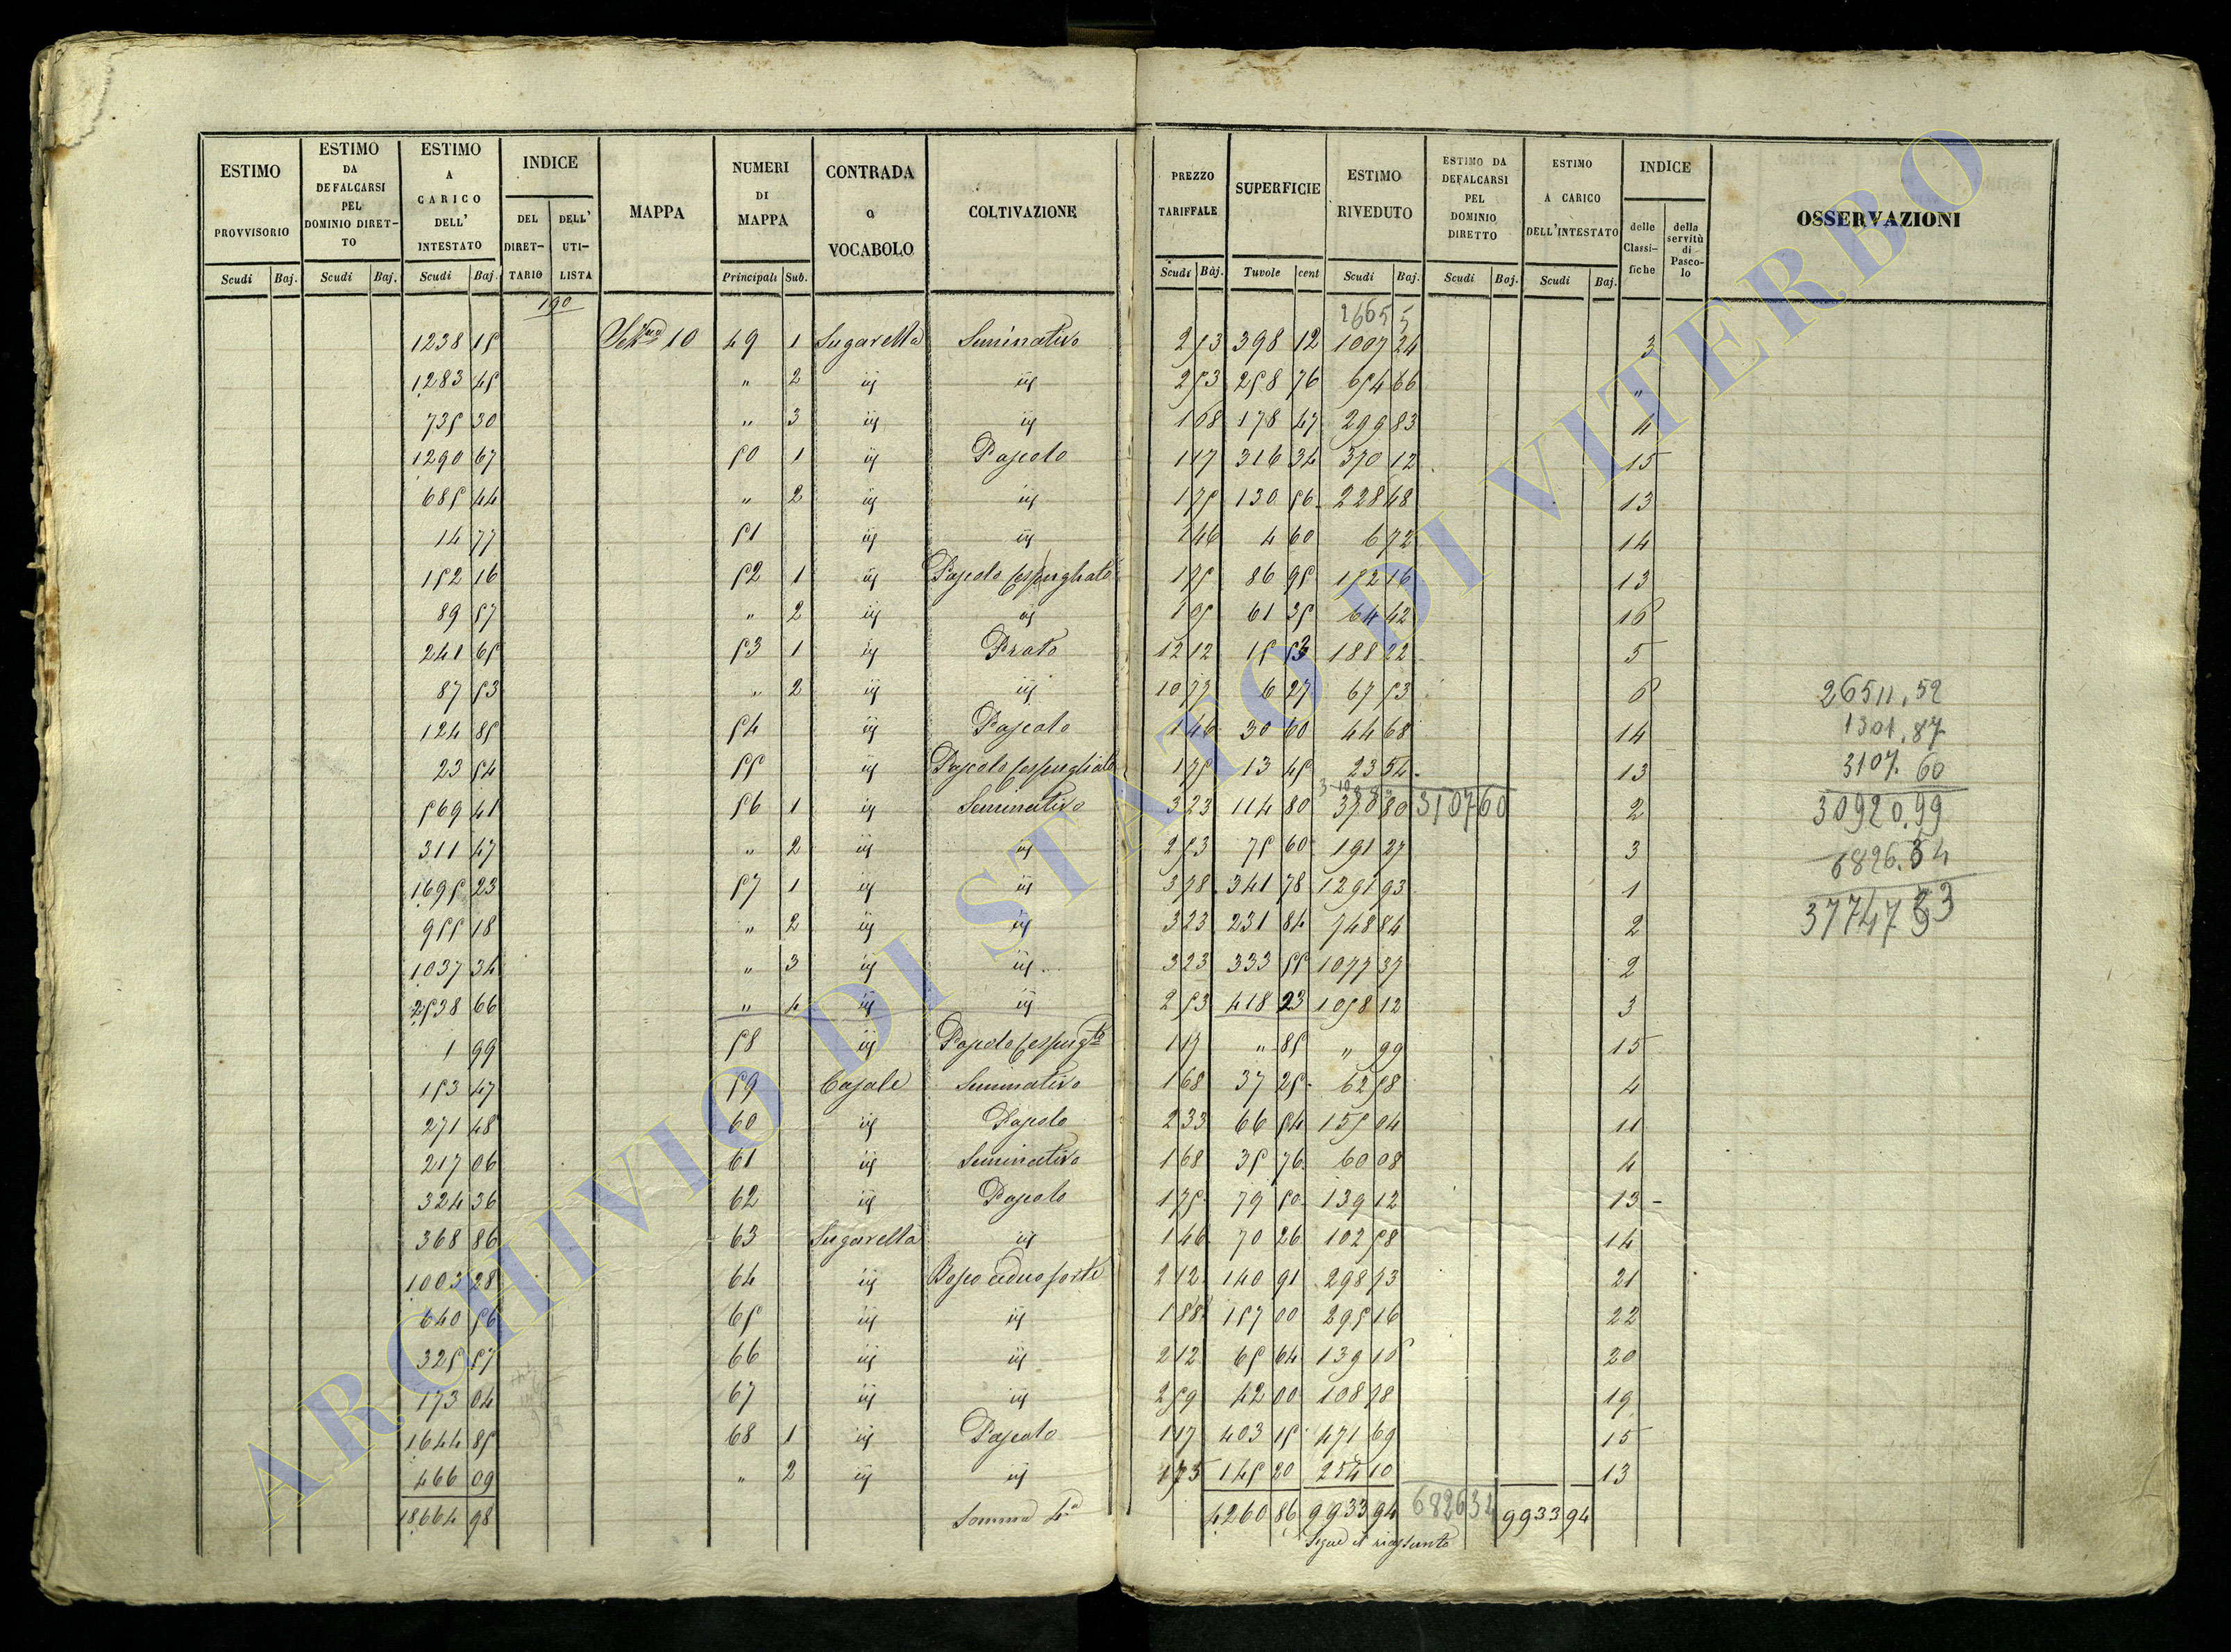 ESTIMO PROVVISORIO | ESTIMO DA DEFALCARSI PEL DOMINIO DIRETTO | ESTIMO A CARICO DELL' INTESTATO | INDICE | MAPPA | NUMERI DI MAPPA | CONTRADA o VOCABOLO | COLTIVAZIONE | PREZZO TARIFFALE | SUPERFICIE | ESTIMO RIVEDUTO | ESTIMO DA DEFALCARSI PEL DOMINIO DIRETTO | ESTIMO A CARICO DELL'INTESTATO | INDICE | OSSERVAZIONI
DEL DIRETTARIO | DELL' UTILISTA | delle Classifiche | della servitù di Pascolo
Scudi | Baj. | Scudi | Baj. | Scudi | Baj. | Principali | Sub. | Scudi | Baj. | Tavole | cent | Scudi | Baj. | Scudi | Baj. | Scudi | Baj.
190
26655
1238 15 | 10 | 49 | 1 | Sugarella | Seminativo | 2 53 | 398 12 | 1007 24 | 3
1283 45 | " | 2 | iij | iij | 2 53 | 258 76 | 654 66 | "
735 30 | " | 3 | iij | iij | 1 68 | 178 47 | 299 83 | 4
1290 67 | 50 | 1 | iij | Pascolo | 1 17 | 316 34 | 370 12 | 15
685 44 | " | 2 | iij | iij | 1 75 | 130 56 | 228 48 | 13
14 77 | 51 | iij | iij | 1 46 | 4 60 | 6 72 | 14
152 16 | 52 | 1 | iij | Pascolo cespugliato | 1 75 | 86 95 | 152 16 | 13
89 57 | " | 2 | iij | iij | 1 05 | 61 35 | 64 42 | 16
241 65 | 53 | 1 | iij | Prato | 12 12 | 15 53 | 188 22 | 5
87 53 | " | 2 | iij | iij | 10 77 | 6 27 | 67 53 | 6
124 85 | 54 | iij | Pascolo | 1 46 | 30 60 | 44 68 | 14
23 54 | 55 | iij | Pascolo cespugliato | 1 75 | 13 45 | 23 54 | 13
569 41 | 56 | 1 | iij | Seminativo | 3 23 | 114 80 | 370 80 | 3107 60 | 2
311 47 | " | 2 | iij | iij | 2 53 | 75 60 | 191 27 | 3
1695 23 | 57 | 1 | iij | iij | 3 78 | 341 78 | 1291 93 | 1
955 18 | " | 2 | iij | iij | 3 23 | 231 84 | 748 84 | 2
1037 34 | " | 3 | iij | iij | 3 23 | 333 55 | 1077 37 | 2
2538 66 | " | 4 | iij | iij | 2 53 | 418 23 | 1058 12 | 3
1 99 | 58 | iij | Pascolo cespugto | 1 17 | " 85 | " 99 | 15
153 47 | 59 | Casale | Seminativo | 1 68 | 37 25 | 62 58 | 4
271 48 | 60 | iij | Pascolo | 2 33 | 66 54 | 155 04 | 11
217 06 | 61 | iij | Seminativo | 1 68 | 35 76 | 60 08 | 4
324 36 | 62 | iij | Pascolo | 1 75 | 79 50 | 139 12 | 13
368 86 | 63 | Sugarella | iij | 1 46 | 70 26 | 102 58 | 14
1003 28 | 64 | iij | Bosco ceduo forte | 2 12 | 140 91 | 298 73 | 21
640 56 | 65 | iij | iij | 1 88 | 157 00 | 295 16 | 22
325 57 | 66 | iij | iij | 2 12 | 65 64 | 139 16 | 20
173 04 | 67 | iij | iij | 2 59 | 42 00 | 108 78 | 19
1644 85 | 68 | 1 | iij | Pascolo | 1 17 | 403 15 | 471 69 | 15
466 09 | " | 2 | iij | iij | 1 75 | 145 20 | 254 10 | 13
18,664 98 | Somma 4a | 4260 86 | 9933 94 | 6826 34 | 9933 94
Segue il riassunto
26511.52
1301.87
3107.60
30920.99
6826.34
37747.33
ARCHIVIO DI STATO DI VITERBO